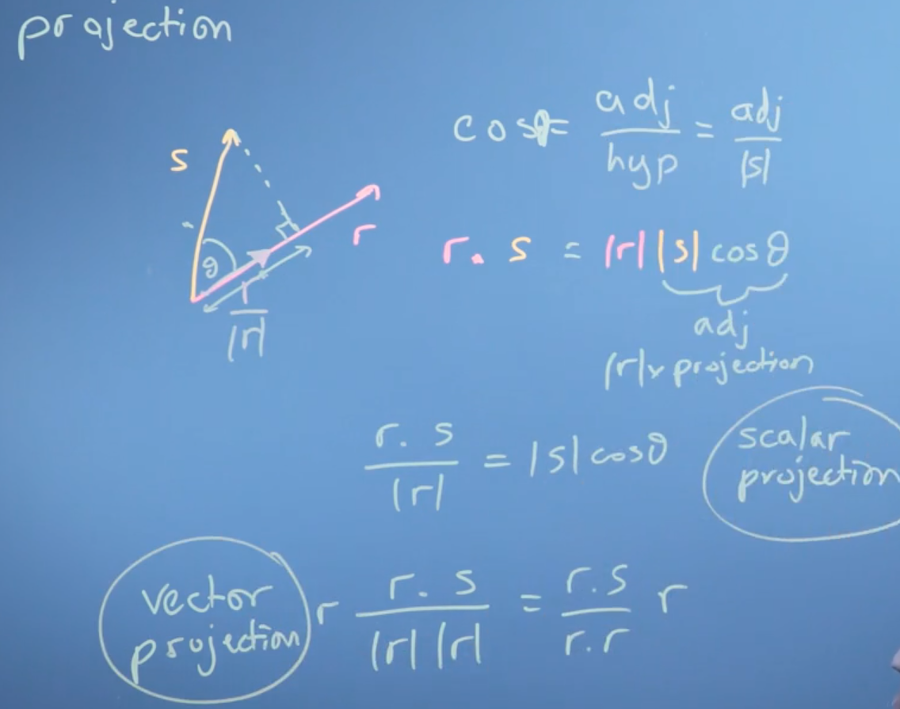 projection
s
cosθ = adj/hyp = adj/|s|
r
θ
r/|r|
r. s = |r||s| cosθ
adj
|r| x projection
r. s/|r| = |s| cosθ
scalar
projection
vector
projection
r r. s/|r| |r| = r.s/r.r r